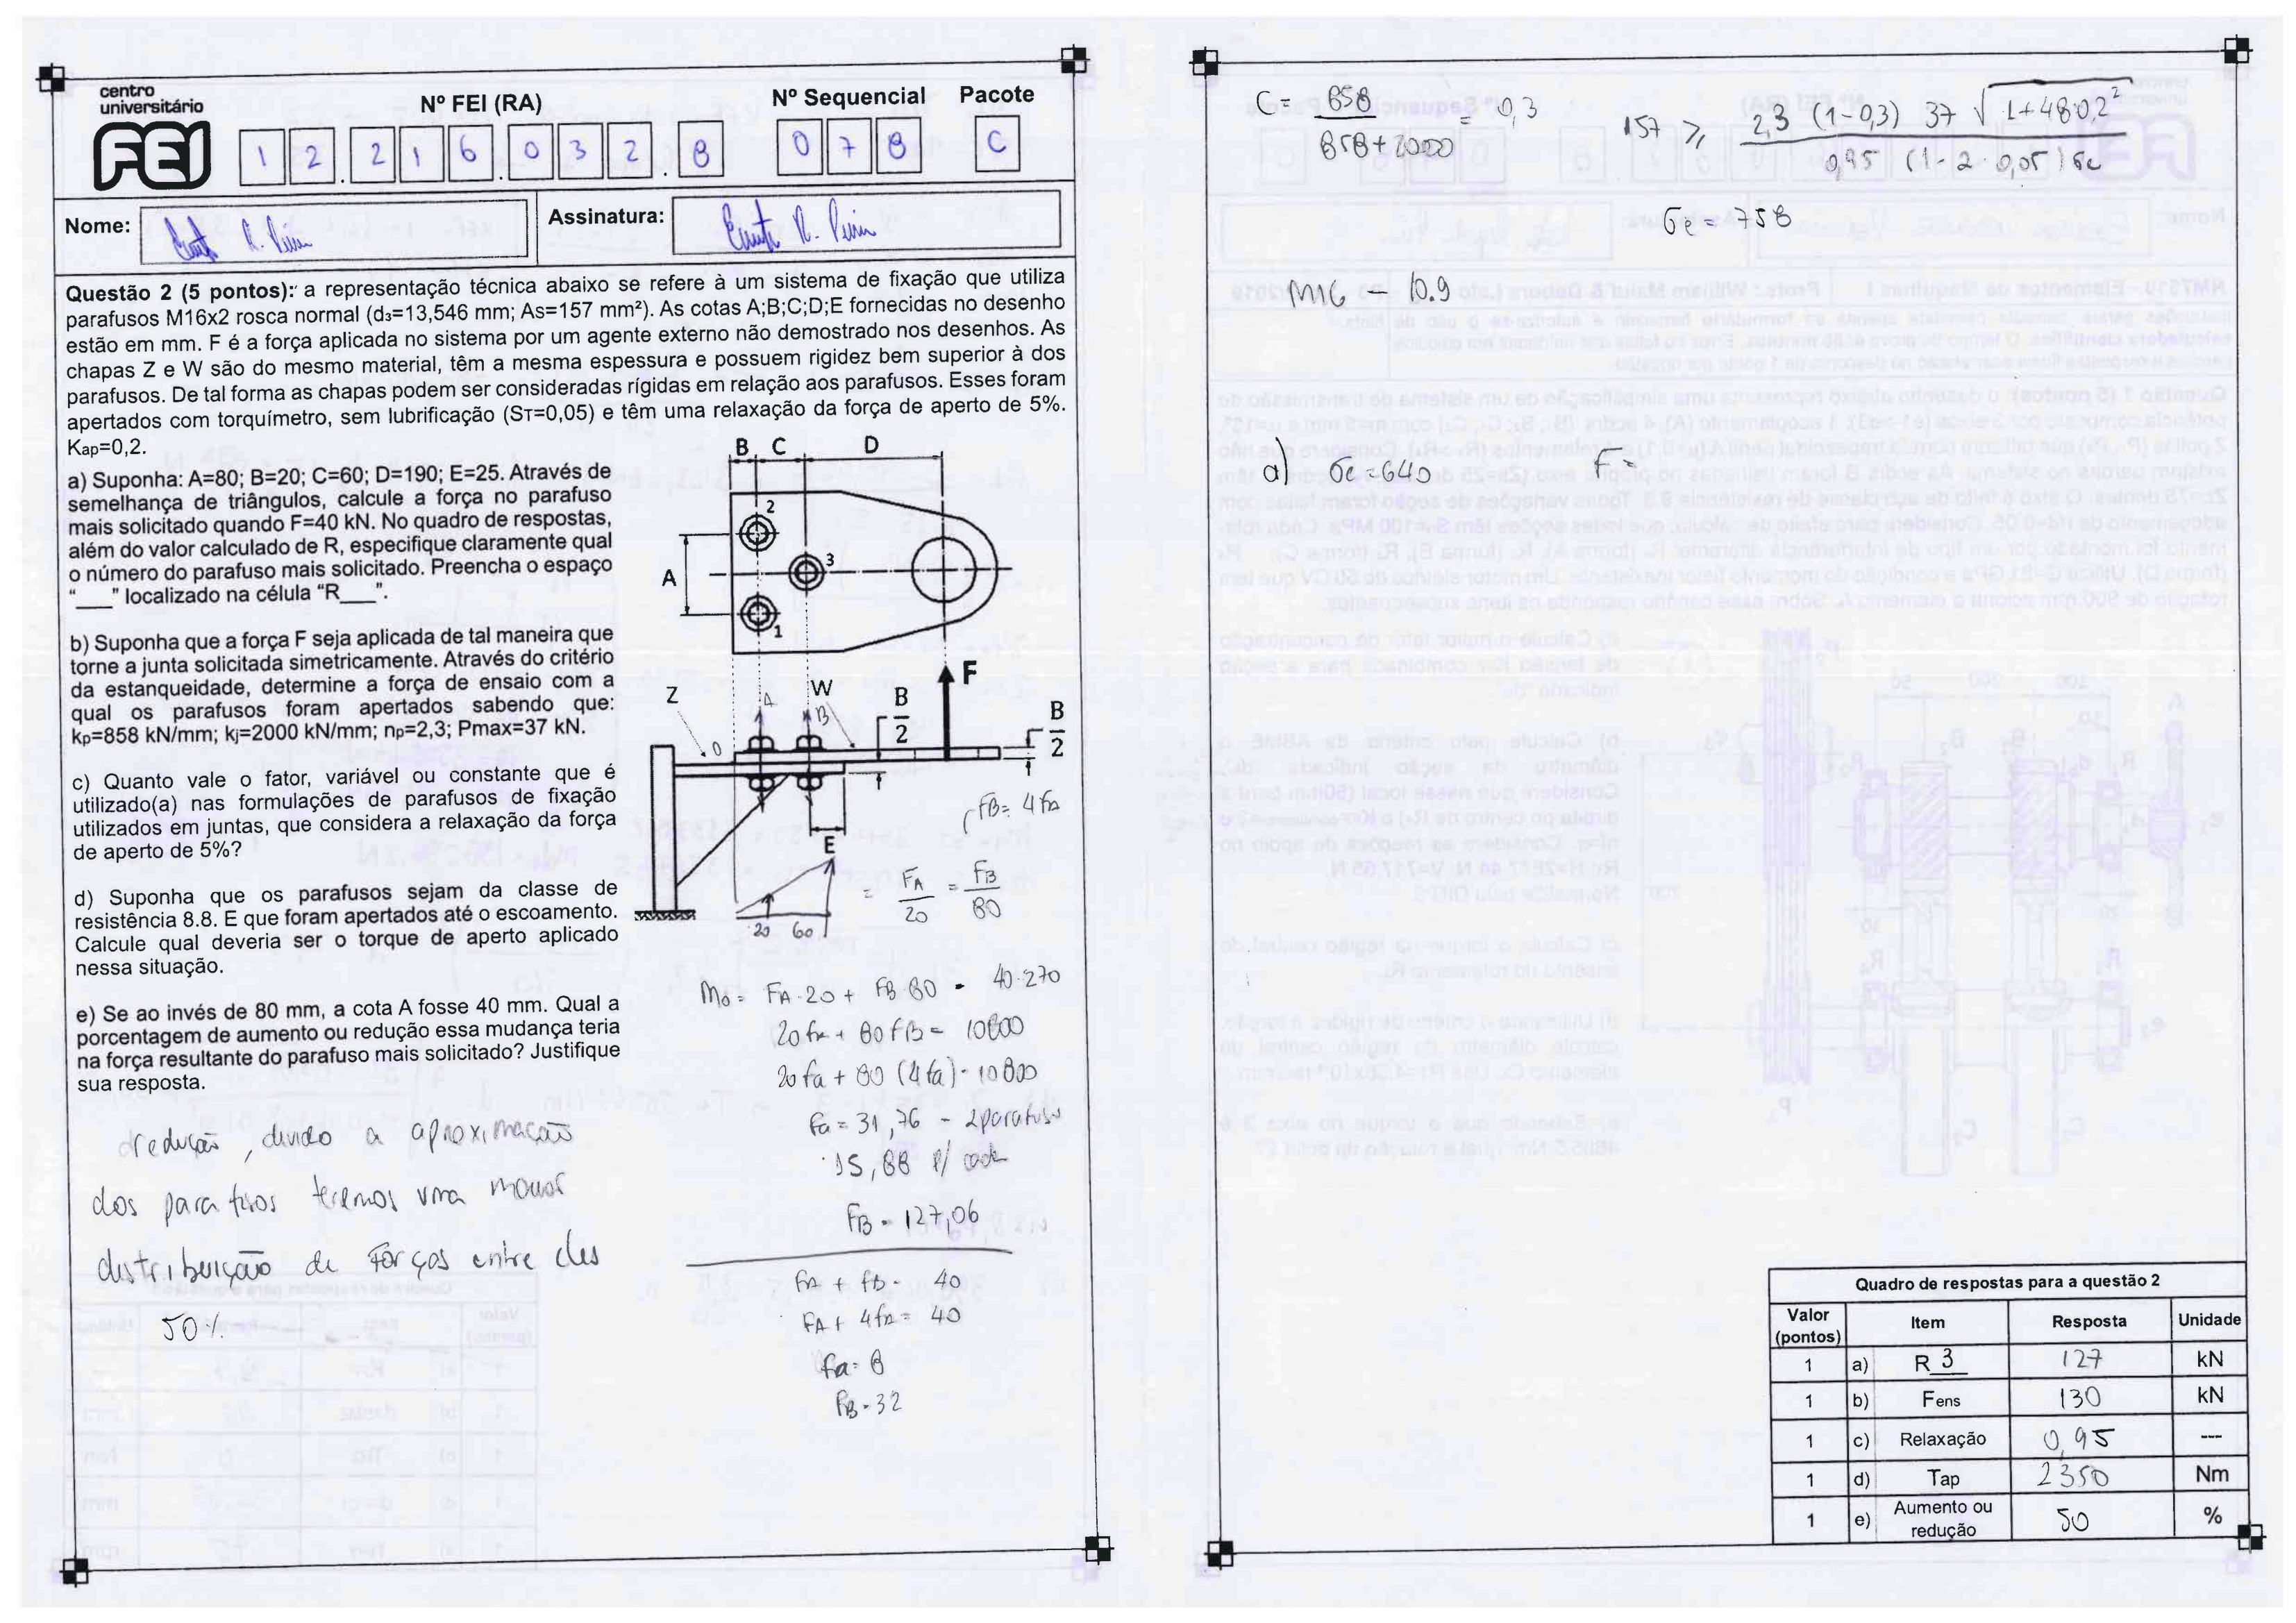 centro
universitário
FEI
Nº FEI (RA)
Nº Sequencial
Pacote
1 2 . 2 1 6 . 0 3 2 . 8
0 7 8
C
Nome:
Assinatura:
Questão 2 (5 pontos): a representação técnica abaixo se refere à um sistema de fixação que utiliza
parafusos M16x2 rosca normal (d₃=13,546 mm; As=157 mm²). As cotas A;B;C;D;E fornecidas no desenho
estão em mm. F é a força aplicada no sistema por um agente externo não demostrado nos desenhos. As
chapas Z e W são do mesmo material, têm a mesma espessura e possuem rigidez bem superior à dos
parafusos. De tal forma as chapas podem ser consideradas rígidas em relação aos parafusos. Esses foram
apertados com torquímetro, sem lubrificação (Sᴛ=0,05) e têm uma relaxação da força de aperto de 5%.
Kap=0,2.
a) Suponha: A=80; B=20; C=60; D=190; E=25. Através de
semelhança de triângulos, calcule a força no parafuso
mais solicitado quando F=40 kN. No quadro de respostas,
além do valor calculado de R, especifique claramente qual
o número do parafuso mais solicitado. Preencha o espaço
“___” localizado na célula “R___”.
b) Suponha que a força F seja aplicada de tal maneira que
torne a junta solicitada simetricamente. Através do critério
da estanqueidade, determine a força de ensaio com a
qual os parafusos foram apertados sabendo que:
kp=858 kN/mm; kj=2000 kN/mm; np=2,3; Pmax=37 kN.
c) Quanto vale o fator, variável ou constante que é
utilizado(a) nas formulações de parafusos de fixação
utilizados em juntas, que considera a relaxação da força
de aperto de 5%?
d) Suponha que os parafusos sejam da classe de
resistência 8.8. E que foram apertados até o escoamento.
Calcule qual deveria ser o torque de aperto aplicado
nessa situação.
e) Se ao invés de 80 mm, a cota A fosse 40 mm. Qual a
porcentagem de aumento ou redução essa mudança teria
na força resultante do parafuso mais solicitado? Justifique
sua resposta.
B C D
2
3
A
1
F
Z
W
A
B
B/2
B/2
0
E
FB= 4FA
20 60
= FA/20 = FB/80
Mo = FA·20 + FB·80 = 40·270
20fa + 80 fB = 10800
20fa + 80 (4fa) = 10800
Fa = 31,76 - 2 parafusos
15,88 p/ cada
FB = 127,06
FA + fB = 40
FA + 4fa = 40
fa = 8
FB = 32
redução, divido a aproximação
dos parafusos teremos uma menor
distribuição de Forças entre eles
50%
C = 858/(858+2000) = 0,3
157 ≥ 2,3 (1-0,3) 37 √(1+48·0,2²) / 0,95 (1-2·0,05) σe
σe = 758
M16 - 10.9
d) σe = 640 F =
Quadro de respostas para a questão 2
Valor (pontos) Item Resposta Unidade
1 a) R 3 127 kN
1 b) Fens 130 kN
1 c) Relaxação 0,95 ---
1 d) Tap 2350 Nm
1 e) Aumento ou redução 50 %